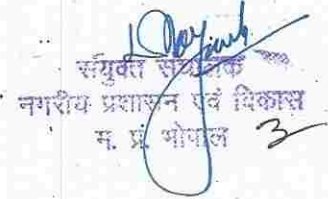 संयुक्त संचालक
नगरीय प्रशासन एवं विकास
म. प्र. भोपाल
3